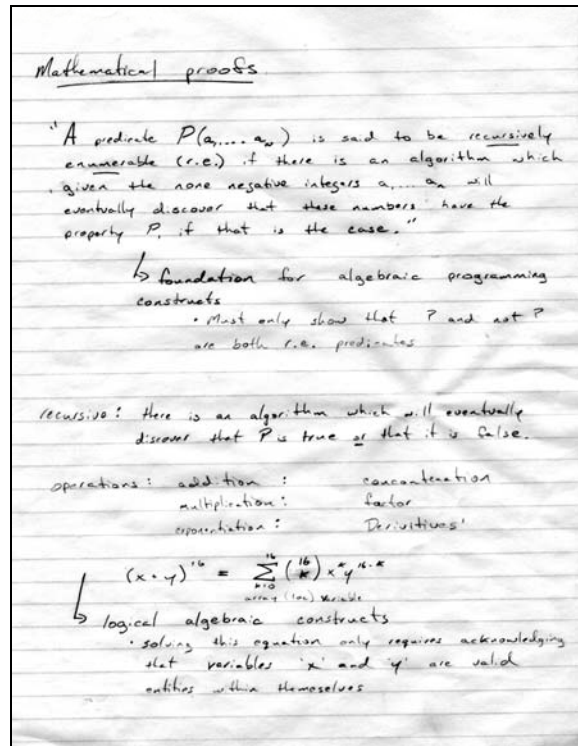 Mathematical proofs
"A predicate P(a,.... aₙ) is said to be recursively
enumerable (r.e.) if there is an algorithm which
given the none negative integers a,... aₙ will
eventually discover that these numbers have the
property P, if that is the case."
↳ foundation for algebraic programming
constructs
• Must only show that P and not P
are both r.e. predicates
recursive: there is an algorithm which will eventually
discover that P is true or that it is false.
operations: addition :
concatenation
multiplication:
factor
exponentiation:
Derivitives'
(x + y)¹⁶ = ∑ₖ₌₀¹⁶ (16 k) xᵏ y¹⁶⁻ᵏ
array (loc) variable
↳ logical algebraic constructs
• solving this equation only requires acknowledging
that variables 'x' and 'y' are valid
entities within themselves